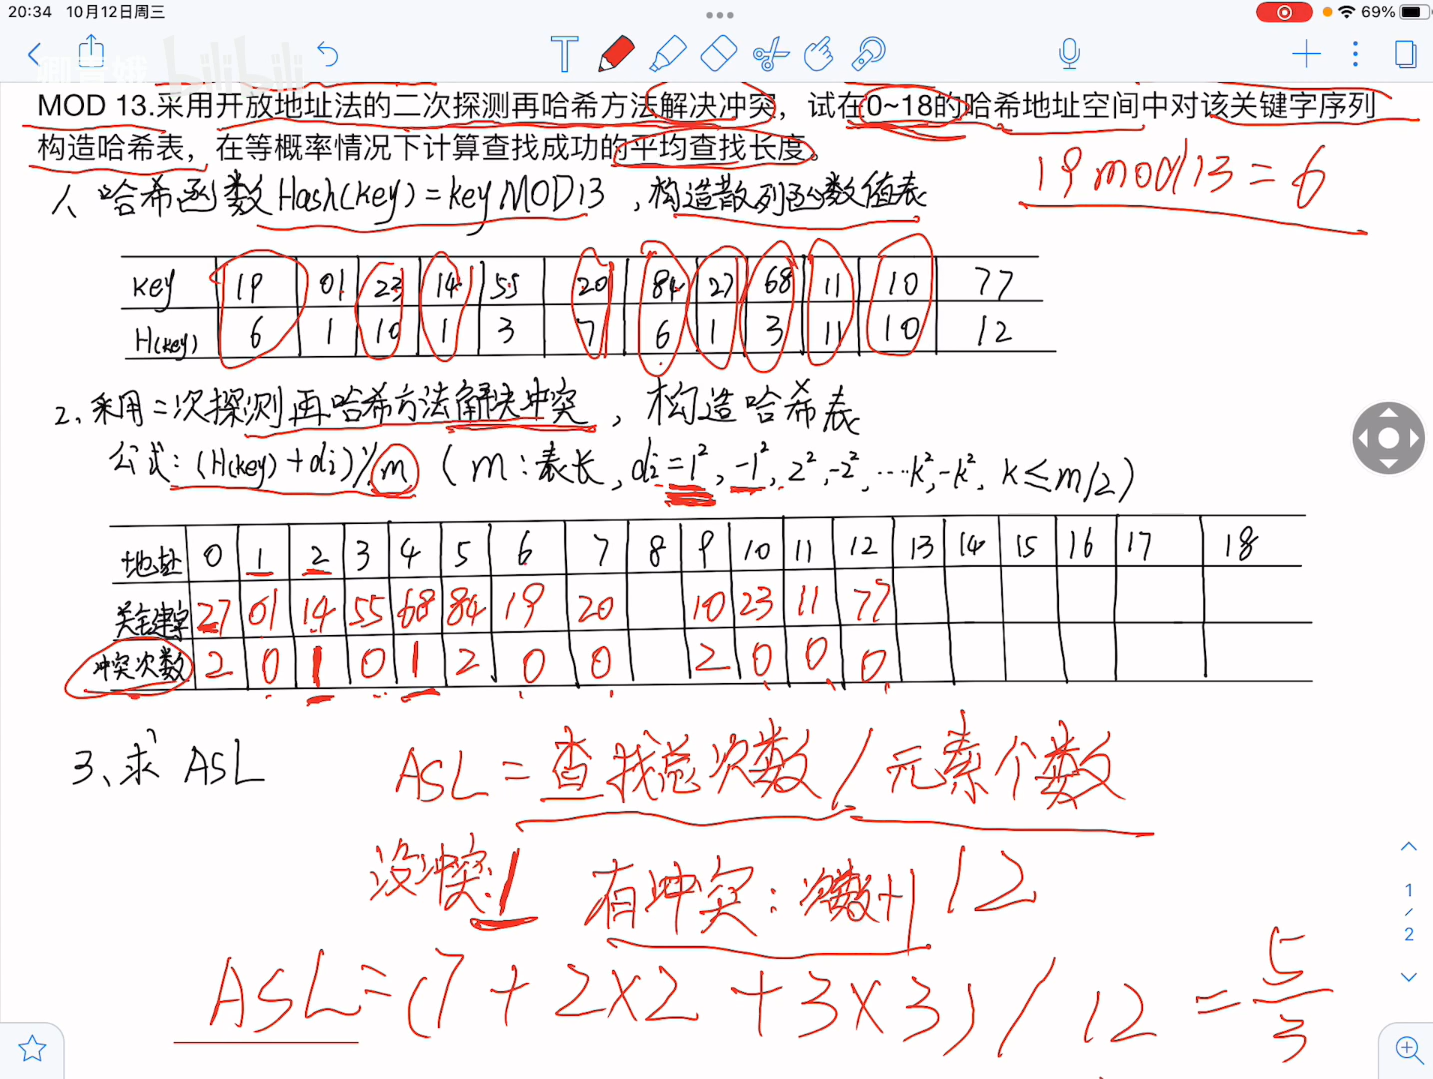 20:34 10月12日周三
69%
MOD 13.采用开放地址法的二次探测再哈希方法解决冲突，试在0~18的哈希地址空间中对该关键字序列
构造哈希表，在等概率情况下计算查找成功的平均查找长度。
19 mod 13 = 6
1、哈希函数Hash(key)=key MOD13，构造散列函数值表
key 19 01 23 14 55 20 84 27 68 11 10 77
H(key) 6 1 10 1 3 7 6 1 3 11 10 12
2、采用二次探测再哈希方法解决冲突，构造哈希表
公式：(H(key)+di)%m (m:表长，di=1²,-1²,2²,-2²,…k²,-k², k≤m/2)
地址 0 1 2 3 4 5 6 7 8 9 10 11 12 13 14 15 16 17 18
关键字 27 01 14 55 68 84 19 20 10 23 11 77
冲突次数 2 0 1 0 1 2 0 0 2 0 0 0
3、求 ASL
ASL = 查找总次数 / 元素个数
没冲突:1 有冲突：次数+1 12
ASL=(7+2×2+3×3)/12=5/3
1
/
2